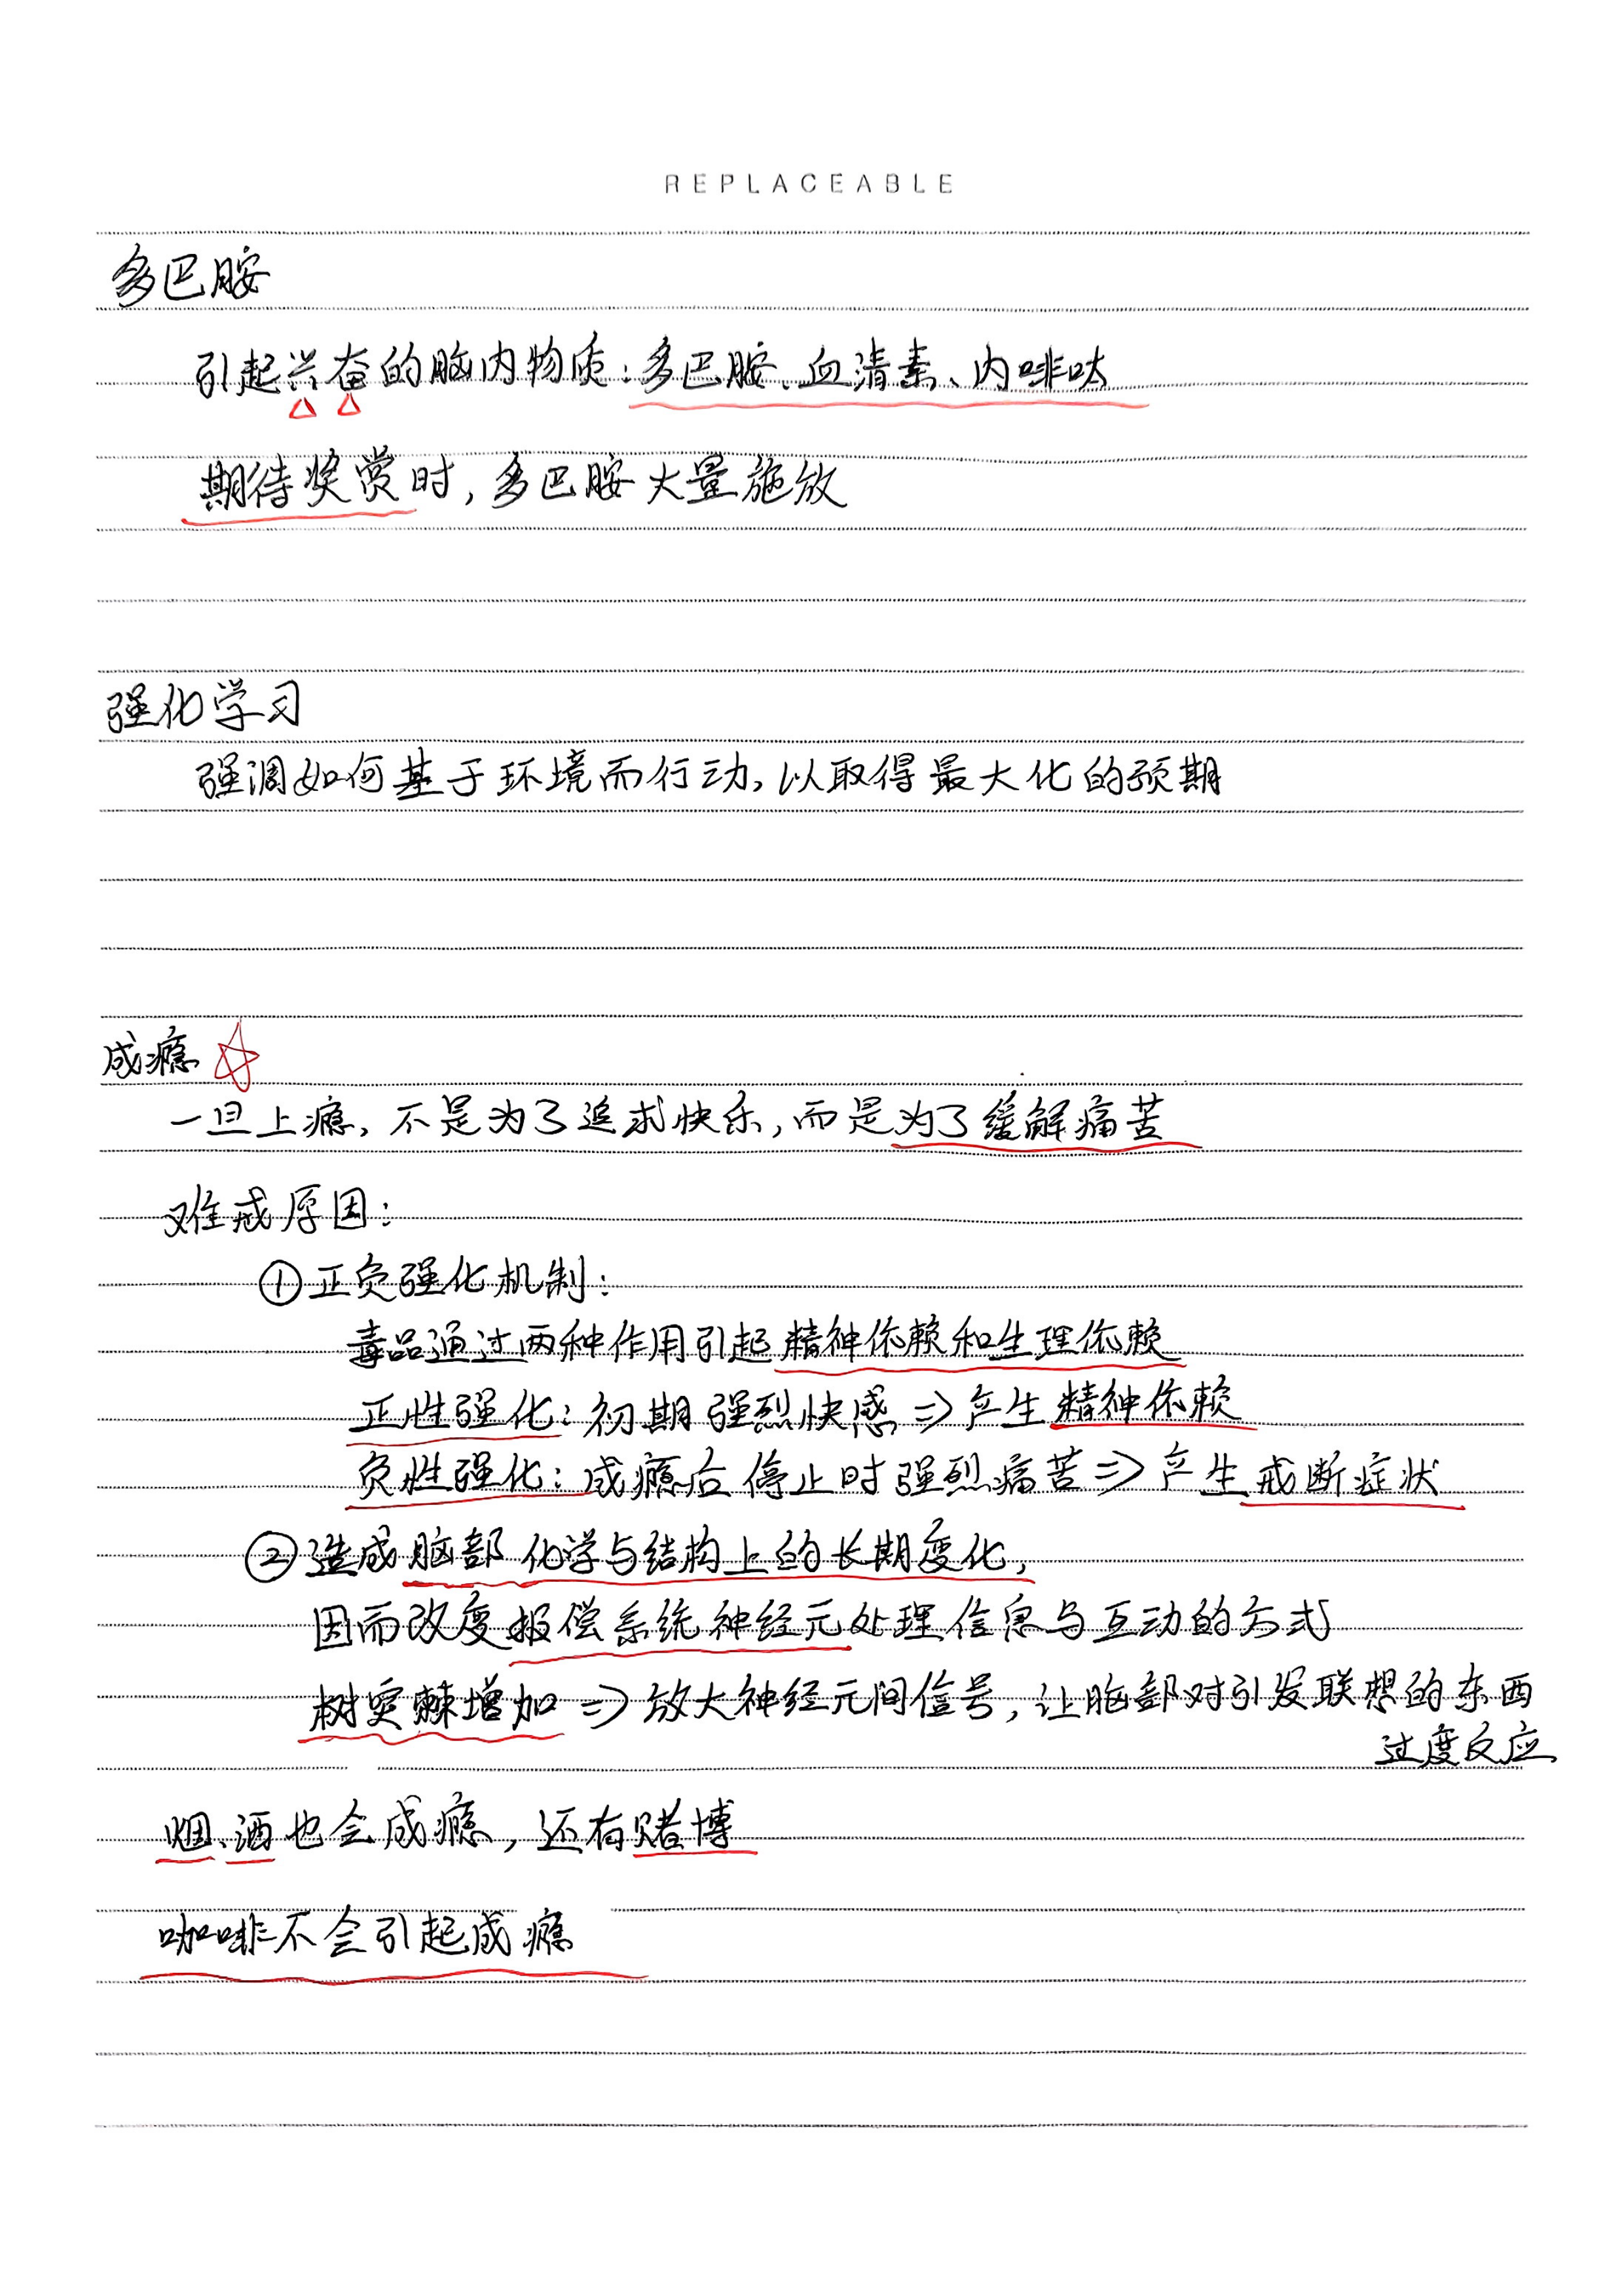 REPLACEABLE
多巴胺
引起兴奋的脑内物质：多巴胺、血清素、内啡呔
期待奖赏时，多巴胺大量施放
强化学习
强调如何基于环境而行动，以取得最大化的预期
成瘾
一旦上瘾，不是为了追求快乐，而是为了缓解痛苦
难戒原因：
①正负强化机制：
毒品通过两种作用引起精神依赖和生理依赖
正性强化：初期强烈快感⇒产生精神依赖
负性强化：成瘾后停止时强烈痛苦⇒产生戒断症状
②造成脑部化学与结构上的长期变化，
因而改变报偿系统神经元处理信息与互动的方式
树突棘增加⇒放大神经元间信号，让脑部对引发联想的东西
过度反应
烟、酒也会成瘾，还有赌博
咖啡不会引起成瘾